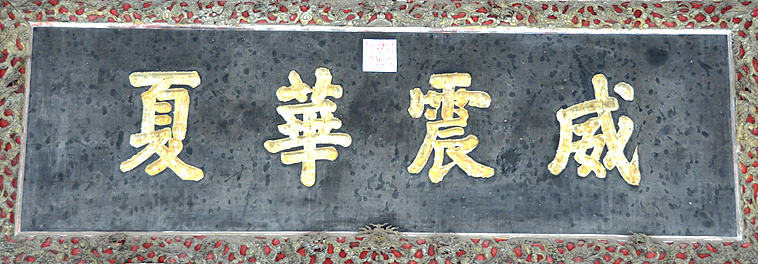 威震華夏